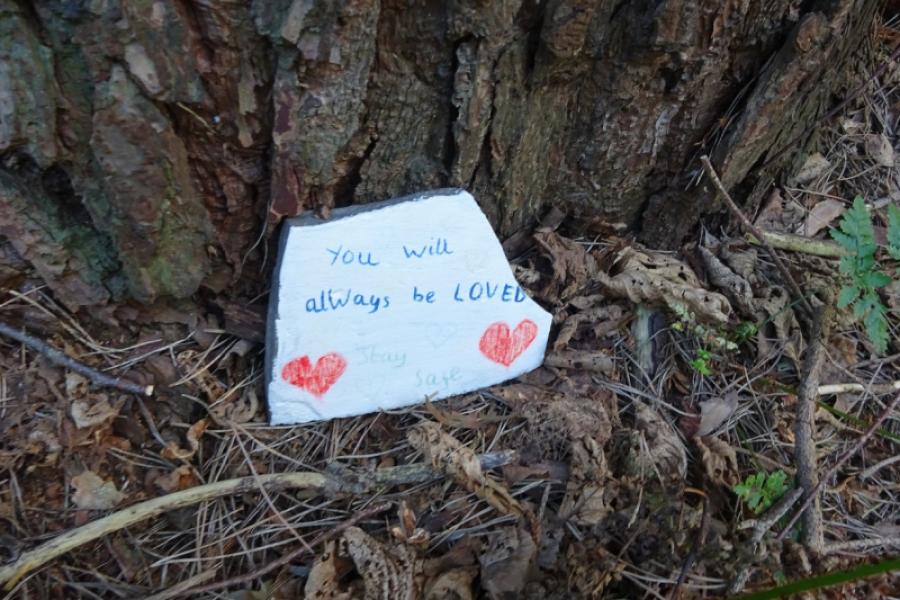 You will
always be LOVED
Stay
safe